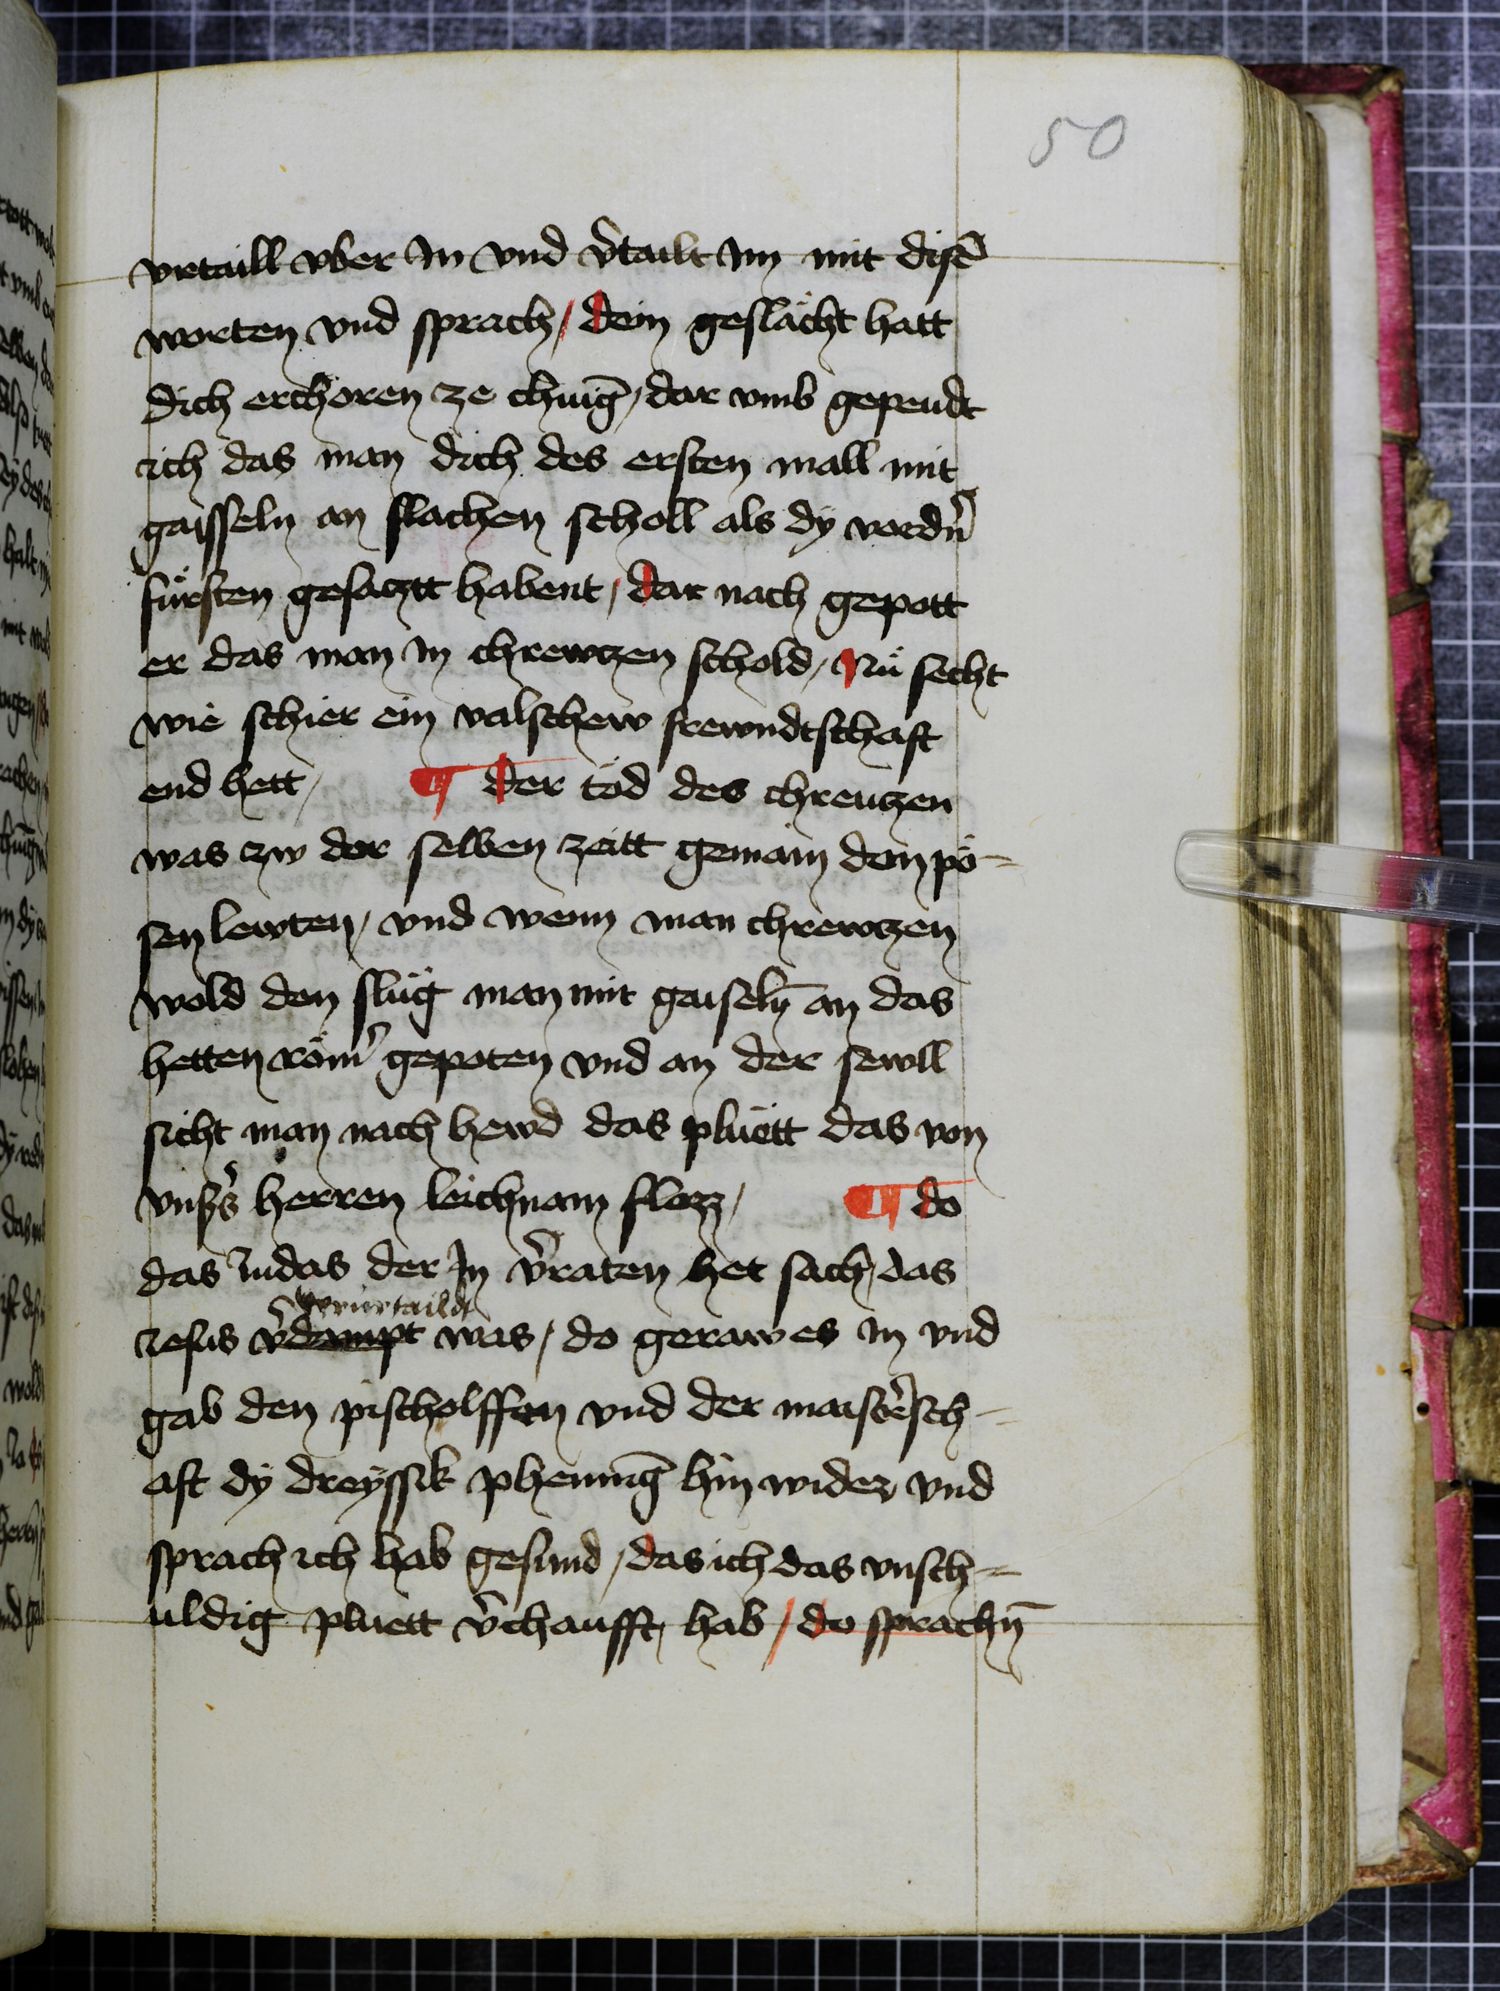 50
vrtaill vber In vnd v̉tailt Im mit disē
worten vnd sprach / dein geslächt hatt
dich erchoren ze chuniḡ / dar vmb gepeudt
ich das man dich des ersten mall mit
gaisseln an slachen scholl als dy vordn̉
fürsten gesaczt habent / dar nach gepott
er das man In chrewczen schold / Nů secht
wie schier ein valschew frewndtschaft
end hett / ¶ der tod des chreuczen
was zw der selben zeitt gemain den pö-
sen lewten / vnd wenn man chrewczen
wold den slůg man mit gaiseln̄ an das
hetten röm̉ gepoten vnd an der sewll
sicht man nach hewd das pluett das von
vnsers herren leichnam flozz / ¶ do
das Judas der In v̉raten het sach / das
verurtaildt
Jesus v̉dampt was / do geraw es In vnd
gab den pischolffen vnd der maist̉sch-
aft dy dreyssik phenninḡ hin wider vnd
sprach ich hab gesund / das ich das vnsch-
uldig pluett v̉chaufft hab / do sprachn̄